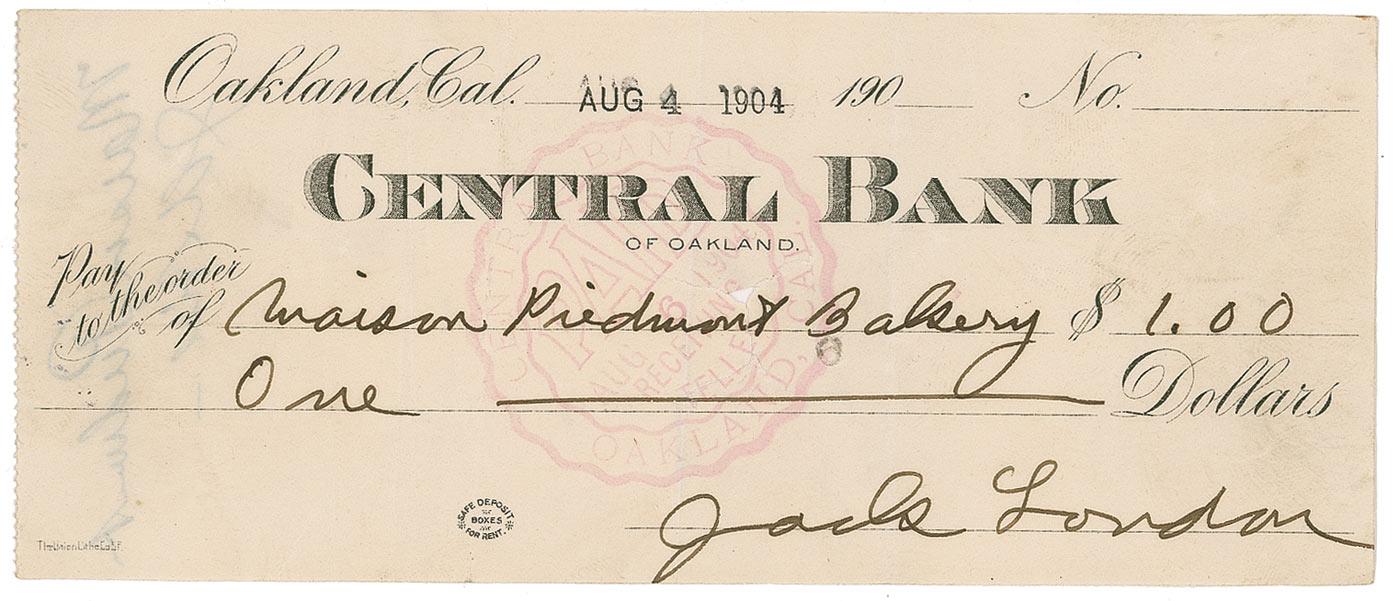 Oakland, Cal. AUG 4 1904 190 No.
CENTRAL BANK
OF OAKLAND.
Pay to the order of Maison Piedmont Bakery $ 1.00
One Dollars
Jack London
SAFE DEPOSIT BOXES FOR RENT.
CENTRAL BANK OAKLAND, CAL.
PAID
AUG 6 1904
RECEIVING TELLER